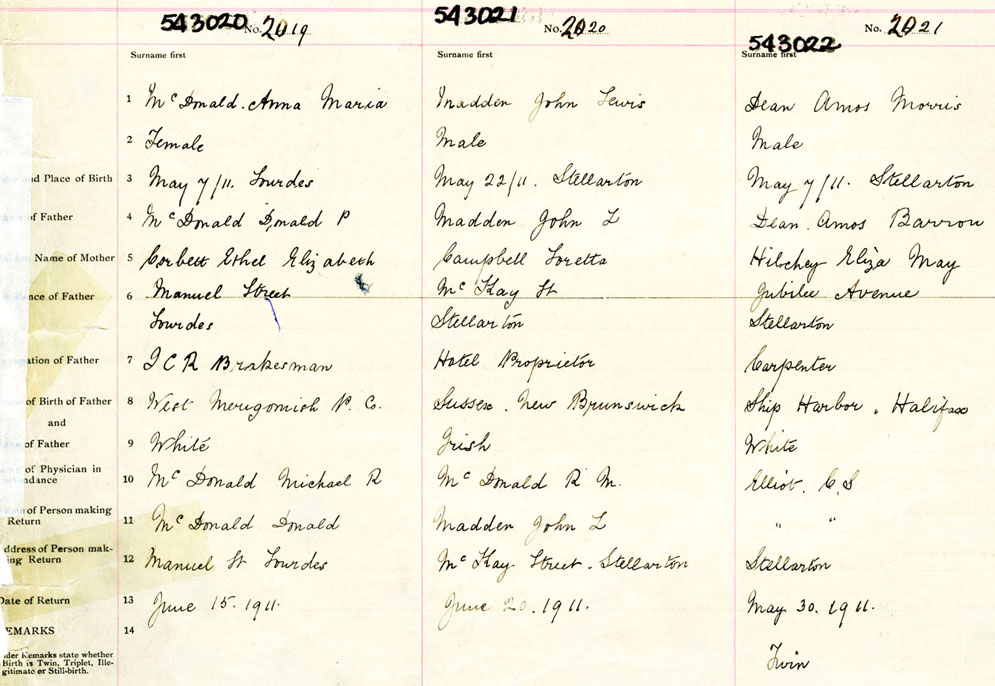 543020 No. 2019
543021 No. 2020
543022 No. 2021
Surname first
Surname first
Surname first
1 McDonald. Anna Maria
Madden John Lewis
Dean Amos Morris
2 Female
Male
Male
and Place of Birth 3 May 7/11. Lourdes
May 22/11. Stellarton
May 7/11. Stellarton
of Father 4 McDonald Donald P
Madden John L
Dean. Amos Barron
Name of Mother 5 Corbett Ethel Elizabeth
Campbell Loretta
Hilchey Eliza May
nce of Father 6 Manuel Street
McKay St
Jubilee Avenue
Lourdes
Stellarton
Stellarton
ation of Father 7 I C R Brakesman
Hotel Proprietor
Carpenter
of Birth of Father 8 West Merigomish P. Co.
Sussex. New Brunswick
Ship Harbor, Halifax
and
of Father 9 White
Irish
White
of Physician in
ndance 10 McDonald Michael R
McDonald R M.
Elliot. C, S
of Person making
Return 11 McDonald Donald
Madden John L
" "
ddress of Person mak-
ing Return 12 Manuel St Lourdes
McKay Street. Stellarton
Stellarton
Date of Return 13 June 15. 1911.
June 20. 1911.
May 30. 1911.
EMARKS 14
der Remarks state whether
Birth is Twin, Triplet, Ille-
gitimate or Still-birth.
Twin